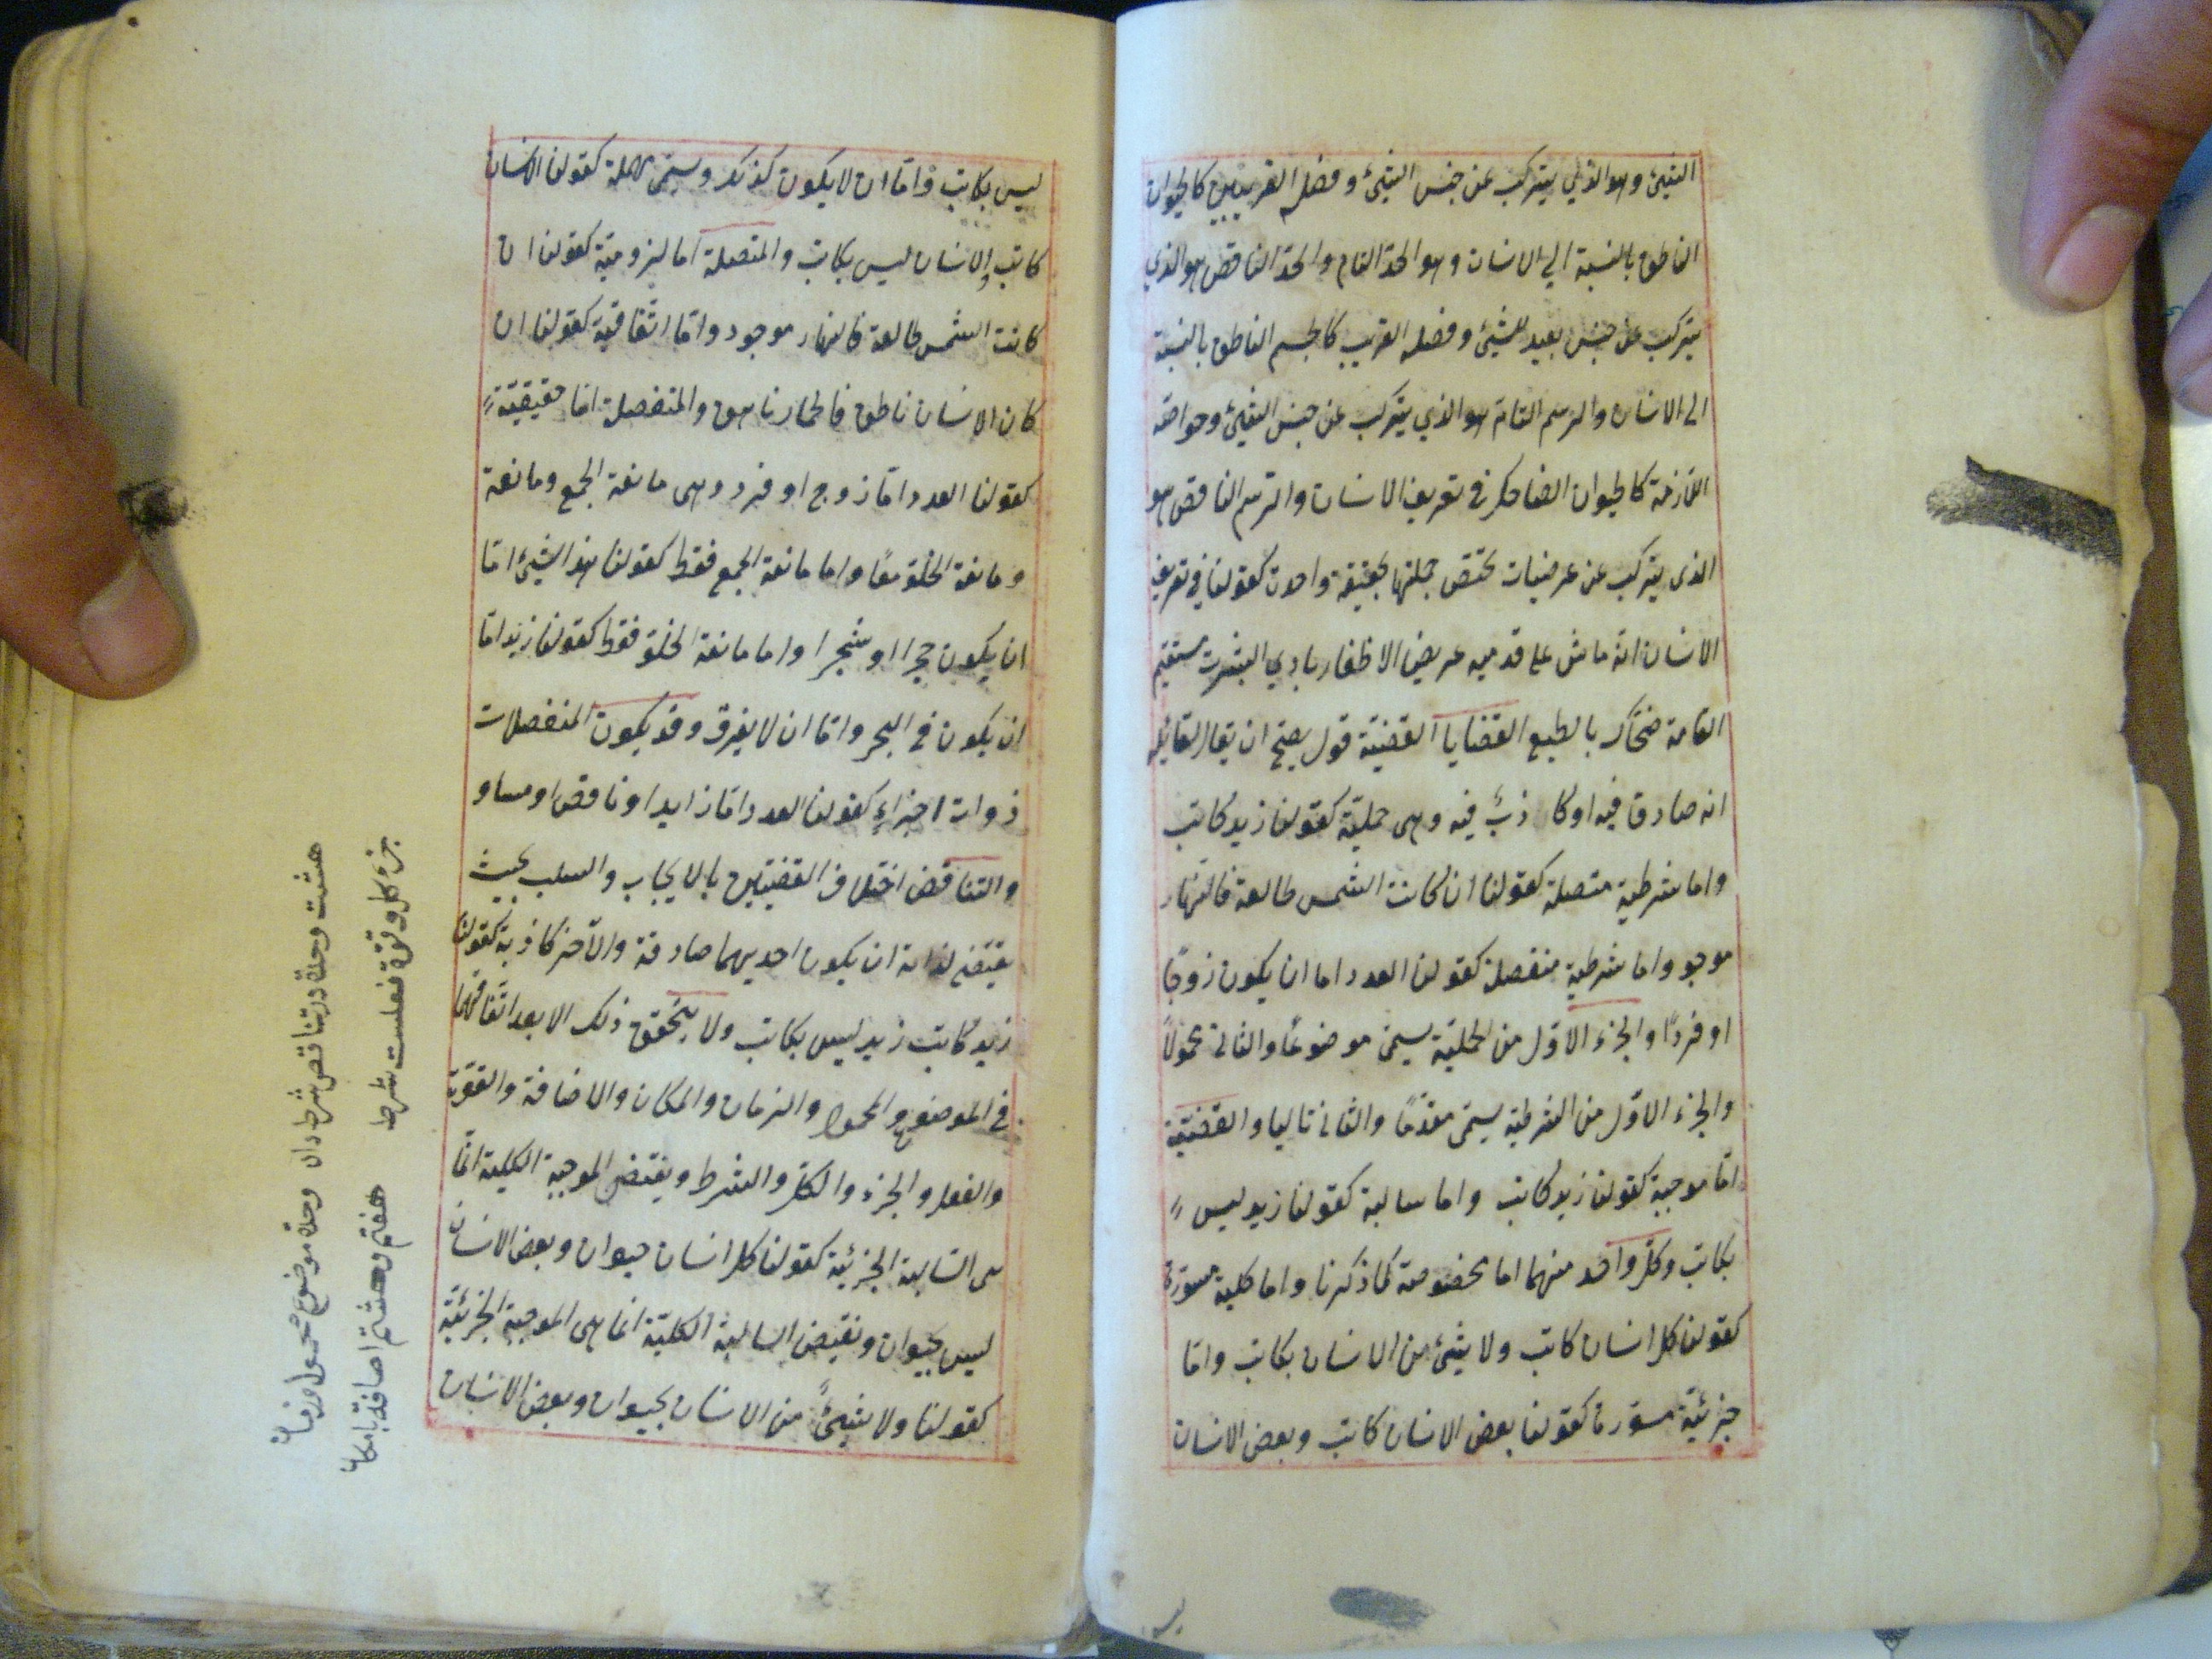 الشئ وهو الذي يتركب عن جنس الشئ وفصله القريبين كالحيوان
الناطق بالنسبة الي الانسان وهو الحد التام والحد الناقص هو الذي
يتركب عن جنس بعيد للشئ وفصله القريب كالجسم الناطق بالنسبة
الى الانسان والرسم التام هو الذي يتركب عن جنس الشئ وخواصه
اللازمة كالحيوان الضاحك في تعريف الانسان والرسم الناقص هو
الذى يتركب عن عرضيات تختص جملتها بحقيقة واحدة كقولنا في تعريف
الانسان انه ماش على قدميه عريض الاظفار بادي البشرت مستقيم
القامة ضحاك بالطبع القضايا القضية قول يصح ان يقال لقائله
انه صادق فيه او كاذب فيه وهى حملية كقولنا زيد كاتب
واما شرطية متصلة كقولنا ان كانت الشمس طالعة فالنهار
موجود واما شرطية منفصلة كقولنا العدد اما ان يكون زوجًا
او فردًا والجزء الاول من الحملية يسمى موضوعًا والثانى محمولاً
والجزء الاول من الشرطية يسمى مقدمًا والثانى تاليا والقضية
اما موجبة كقولنا زيد كاتب واما سالبة كقولنا زيد ليس
بكاتب وكل واحد منهما اما مخصوصة كما ذكرنا واما كلية مسورة
كقولنا كل انسان كاتب ولا شئ من الانسان بكاتب واما
جزئية مسورة كقولنا بعض الانسان كاتب وبعض الانسان
ليس
ليس بكاتب واما ان لا يكون كذلك وسمى مهملة كقولنا الانسان
كاتب والانسان ليس بكاتب والمتصلة اما لزومية كقولنا ان
كانت الشمس طالعة فالنهار موجود واما اتفاقية كقولنا ان
كان الانسان ناطق فالحمار ناهق والمنفصلة اما حقيقية
كقولنا العدد اما زوج او فرد وهى مانعة الجمع ومانعة
ومانعة الخلو معًا واما مانعة الجمع فقط كقولنا هذا الشئ اما
ان يكون حجرا او شجرا واما مانعة الخلو فقط كقولنا زيد اما
ان يكون في البحر واما ان لا يغرق وقد يكون المنفصلات
ذوات اجزاء كقولنا العدد اما زايد او ناقص او مساو
والتناقض اختلاف القضيتين بالايجاب والسلب بحيث
يقتضي لذاته ان يكون احديهما صادقة والآخر كاذبة كقولنا
زيد كاتب زيد ليس بكاتب ولا يتحقق ذلك الا بعد اتفاقهما
في الموضوع والمحمول والزمان والمكان والاضافة والقوة
والفعل والجزء والكل والشرط ويقتضى الموجبة الكلية انما
هى السالبة الجزئية كقولنا كل انسان حيوان وبعض الانسان
ليس بحيوان ونقيض السالبة الكلية انما هى الموجبة الجزئية
كقولنا ولا شئ من الانسان بحيوان وبعض الانسان
هشت وحدة در تناقض شرط دان وحدة موضوع محمول وزمان
جزء وكل وقوة فعلست شرط هفتم وهشتم اضافة با مكان